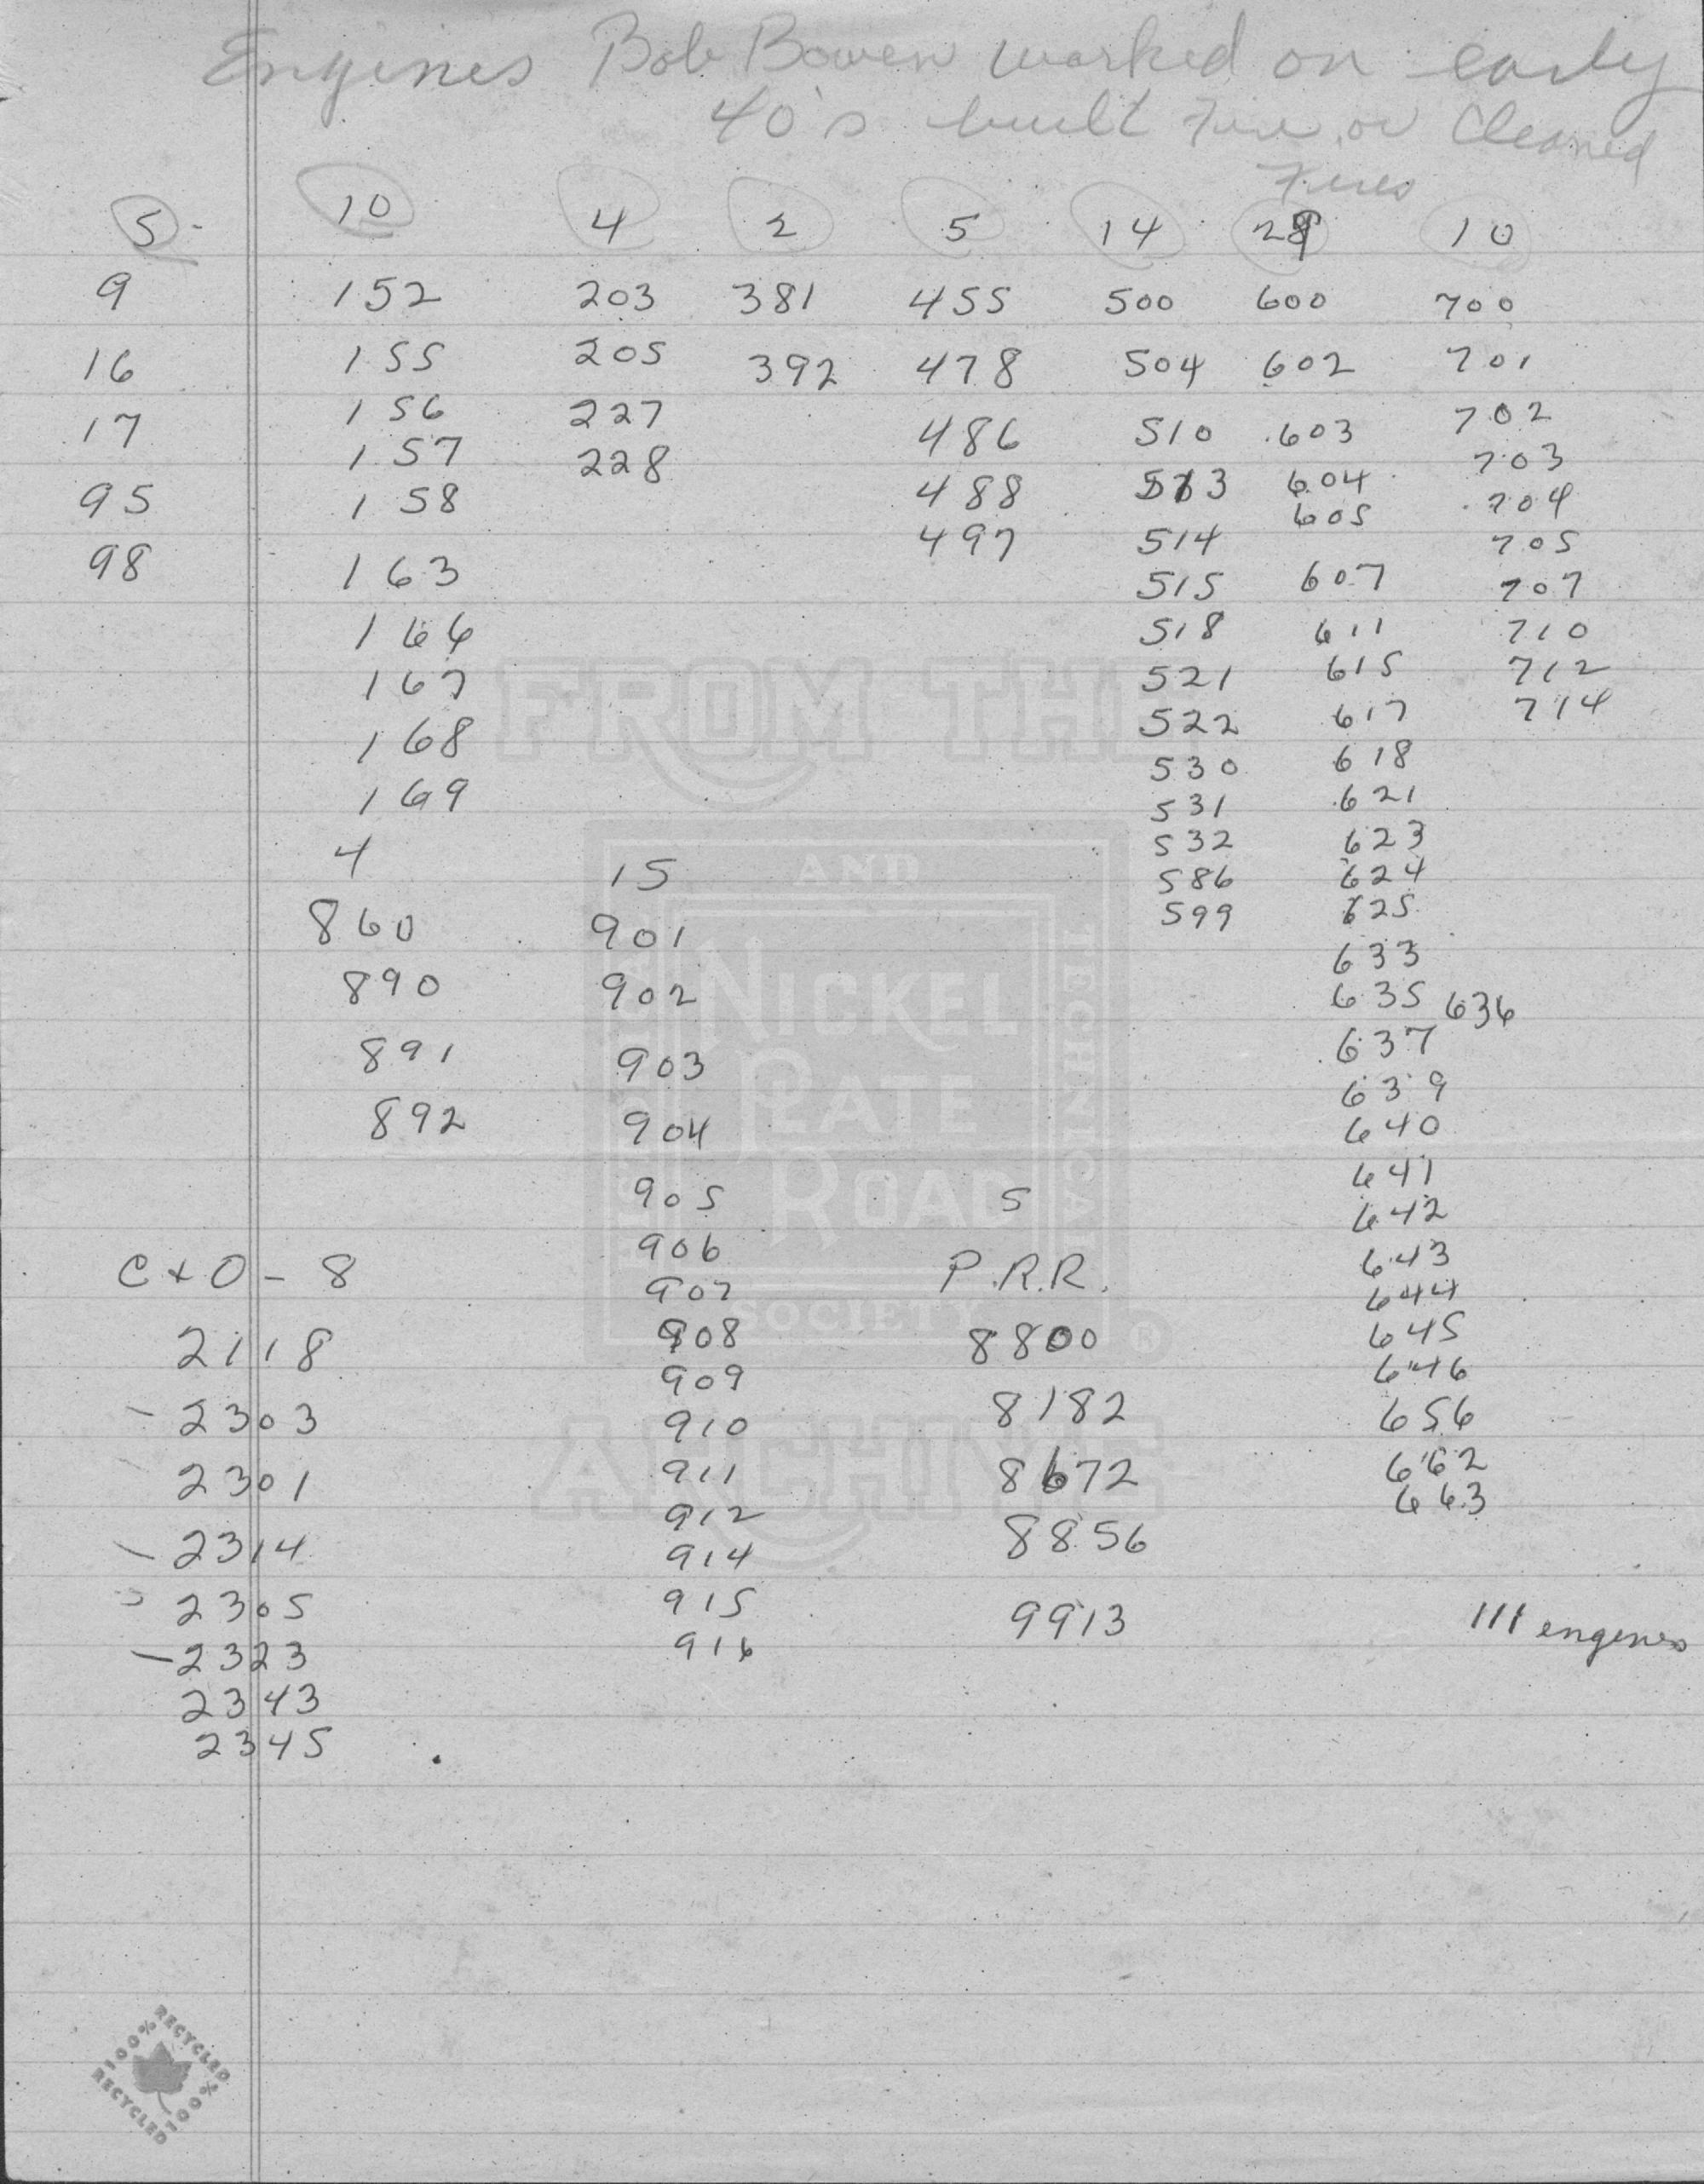 Engines Bob Bowen worked on early
40's built Fire, or Cleaned
Fires
5 - 10 4 2 5 14 29 10
9 152 203 381 455 500 600 700
16 155 205 392 478 504 602 701
17 156 227 486 510 603 702
157 228 703
95 158 488 513 604 704
605
98 163 497 514 705
515 607 707
166 518 611 710
167 521 615 712
522 617 714
168 530 618
169 531 621
4 15 532 623
586 624
860 901 599 625
633
890 902 635 636
891 903 637
639
892 904 640
641
905 5 642
906 643
C + O - 8 907 P.R.R. 644
2118 908 8800 645
909 646
- 2303 910 8182 656
2301 911 8672 662
912 663
- 2314 914 8856
2305 915 9913 111 engines
- 2323 916
2343
2345
FROM THE
AND
NICKEL
PLATE
ROAD
SOCIETY ®
ARCHIVE
HISTORICAL
TECHNICAL
100% RECYCLED
100% RECYCLED